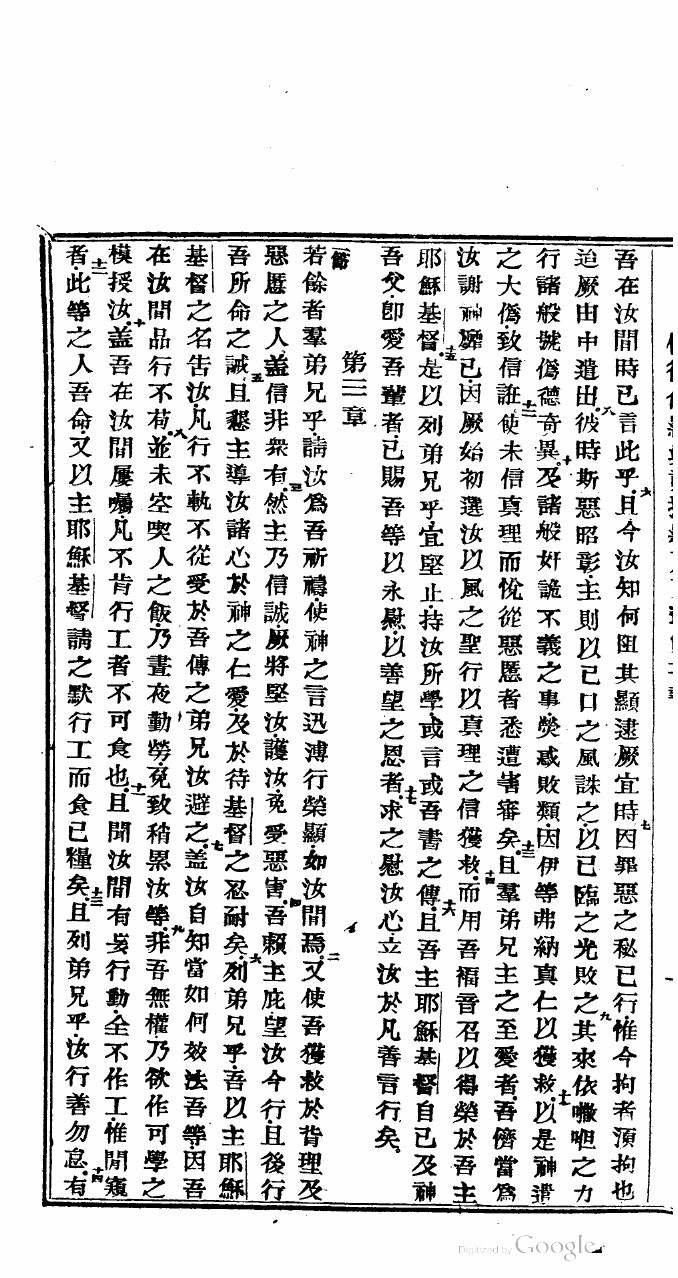 吾在汝間時已言此乎六且今汝知何阻其顯逮厥宜時七因罪惡之秘已行惟今拘者須拘也
迨厥由中遣出八彼時斯惡昭彰主則以己口之風誅之以己臨之光敗之九其來依嚈呾之力
行諸般號僞德奇異十及諸般奸詭不義之事熒惑敗類因伊等弗納真仁以獲救十一以是神遣
之大僞致信誑十二使未信真理而悅從惡慝者悉遭害審矣十三且羣弟兄主之至愛者吾儕當爲
汝謝神已因厥始初選汝以風之聖行以真理之信獲救十四而用吾福音召以得榮於吾主
耶穌基督十五是以列弟兄乎宜堅止持汝所學或言或吾書之傳十六且吾主耶穌基督自己及神
吾父即愛吾輩者已賜吾等以永慰以善望之恩者十七求之慰汝心立汝於凡善言行矣
第三章
一節若餘者羣弟兄乎請汝爲吾祈禱使神之言迅溥行榮顯如汝間焉二又使吾獲救於背理及
惡慝之人蓋信非衆有三然主乃信誠厥將堅汝護汝免受惡害四吾賴主庇望汝今行且後行
吾所命之誡五且懇主導汝諸心於神之仁愛及於待基督之忍耐矣六列弟兄乎吾以主耶穌
基督之名告汝凡行不軌不從受於吾傳之弟兄汝避之七蓋汝自知當如何效法吾等因吾
在汝間品行不苟八並未空喫人之飯乃晝夜勤勞免致稍累汝等九非吾無權乃欲作可學之
模授汝十蓋吾在汝間屢囑凡不肯行工者不可食也十一且聞汝間有妄行動全不作工惟閒窺
者十二此等之人吾命又以主耶穌基督請之默行工而食己糧矣十三且列弟兄乎汝行善勿怠十四有
Digitized by Google